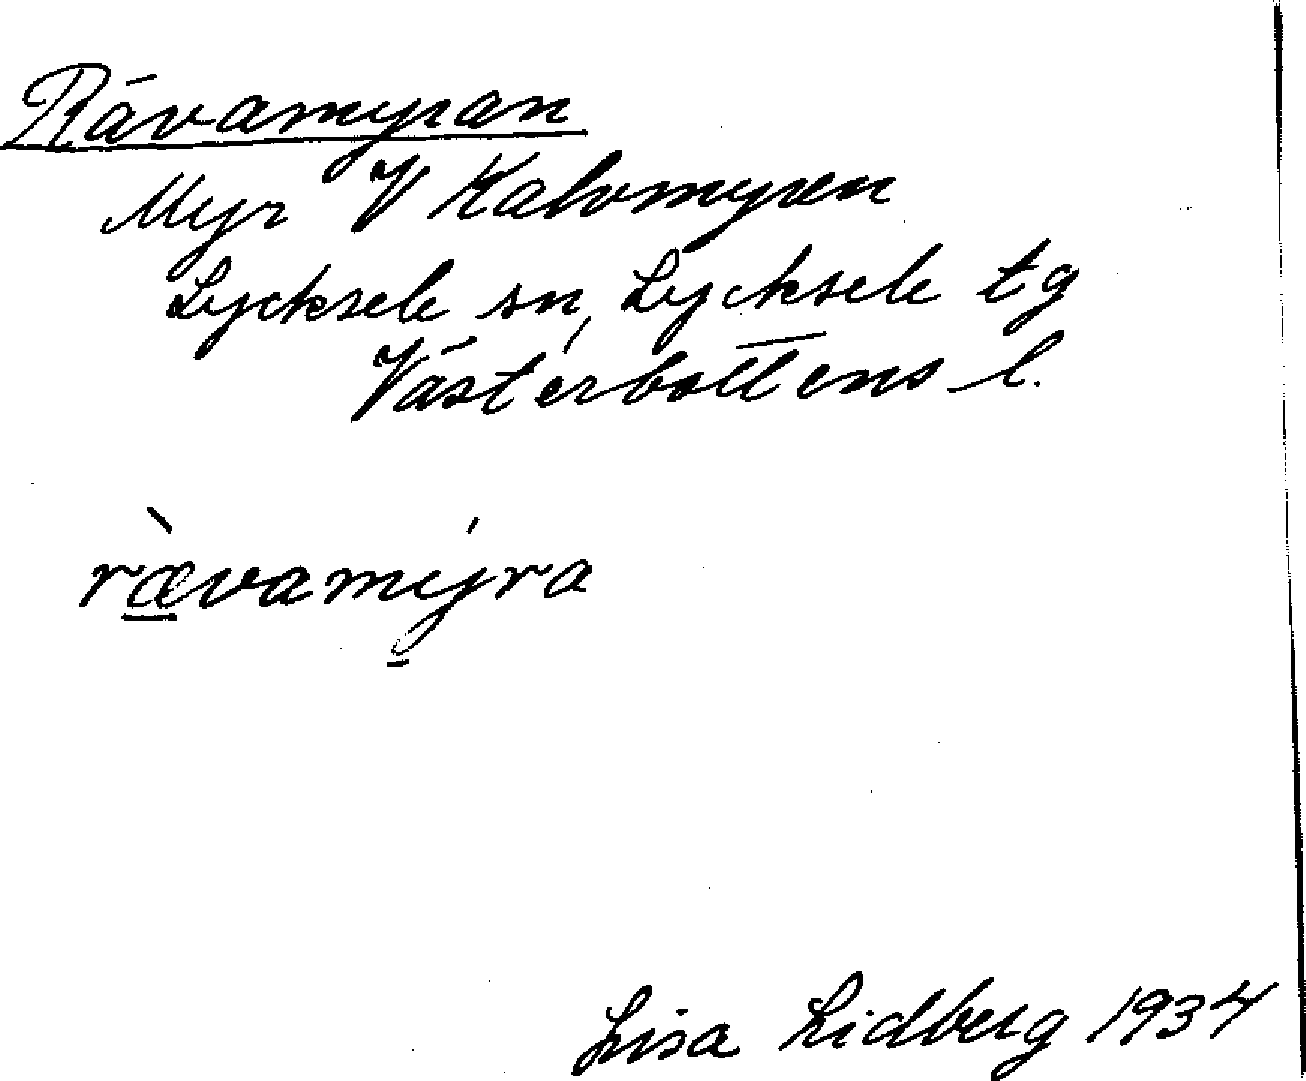 Rävamyran
Myr V Kalvmyren
Lycksele sn, Lycksele tg
Västerbottens l.
ræ̀vamýra
Lisa Lidberg 1934